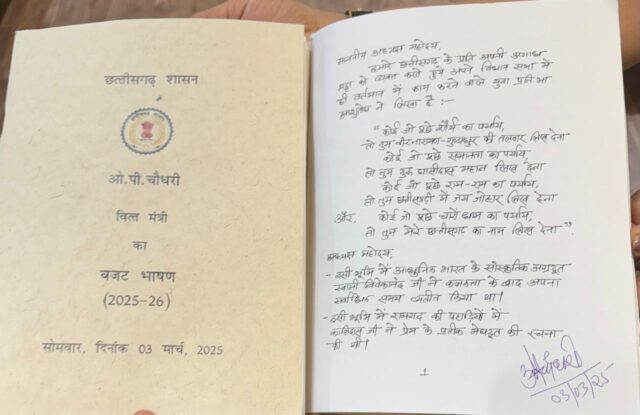 छत्तीसगढ़ शासन
ओ.पी.चौधरी
वित्त मंत्री
का
बजट भाषण
(2025-26)
सोमवार, दिनांक 03 मार्च, 2025
माननीय अध्यक्ष महोदय,
हमारे छत्तीसगढ़ के प्रति अपनी अगाध
श्रद्धा को व्यक्त करते हुये अपने विधान सभा में
ही वर्तमान में काम करने वाले युवा प्रतिभा
ने लिखा है :-
"कोई जो पूछे शौर्य का पर्याय,
तो तुम वीरनारायण-गुण्डाधुर की तलवार लिख देना
कोई जो पूछे समानता का पर्याय,
तो तुम गुरु घासीदास महान लिख देना
कोई जो पूछे राम-राम का पर्याय,
तो तुम छत्तीसगढ़ी में जय जोहार लिख देना
और कोई जो पूछे चारों धाम का पर्याय,
तो तुम मेरे छत्तीसगढ़ का नाम लिख देना"
अध्यक्ष महोदय,
- इसी भूमि में आधुनिक भारत के सांस्कृतिक अग्रदूत
स्वामी विवेकानंद जी ने कलकत्ता के बाद अपना
सर्वाधिक समय व्यतीत किया था।
- इसी भूमि में रामगढ़ की पहाड़ियों में
कालिदास जी ने प्रेम के प्रतीक मेघदूत की रचना
की थी।
1
03/03/25